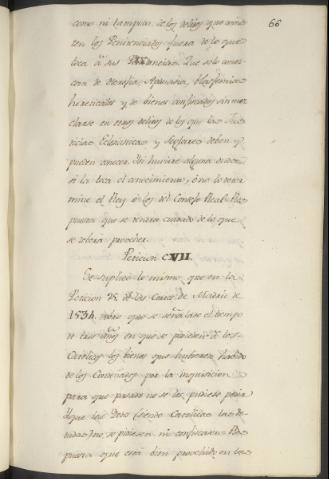 66
como ni tampoco de los delitos que
ten los Penitenciados fuera de lo que
toca à sus Penitencias. Que solo conoz-
can de Heregia, Apostasia, Blasfemia
hereticales y de bienes confiscados sin mez-
clarse en otros delitos de los que las Jus-
ticias Eclesiasticas y Seglares deben y
pueden conocer. Y si huviere alguna duda
si la toca el conocimiento, ò no lo deter-
mine el Rey ò los del Consejo Real. Res-
puesta que se tendra cuidado de lo que
se debera proveher.
Peticion CVII
Se suplicò lo mismo que en la
Peticion de las Cortes de Madrid de
1534. sobre que se señalase el tiempo
de tres años en que se pidiesen à los
Catolicos los bienes que hubieren habido
de los Condenados por la inquisicion
para que pasado no se les pidiese
y que los Dotes siendo Catolicas las
no se pidiesen ni confiscasen. Res-
puesta que està bien proveido en las